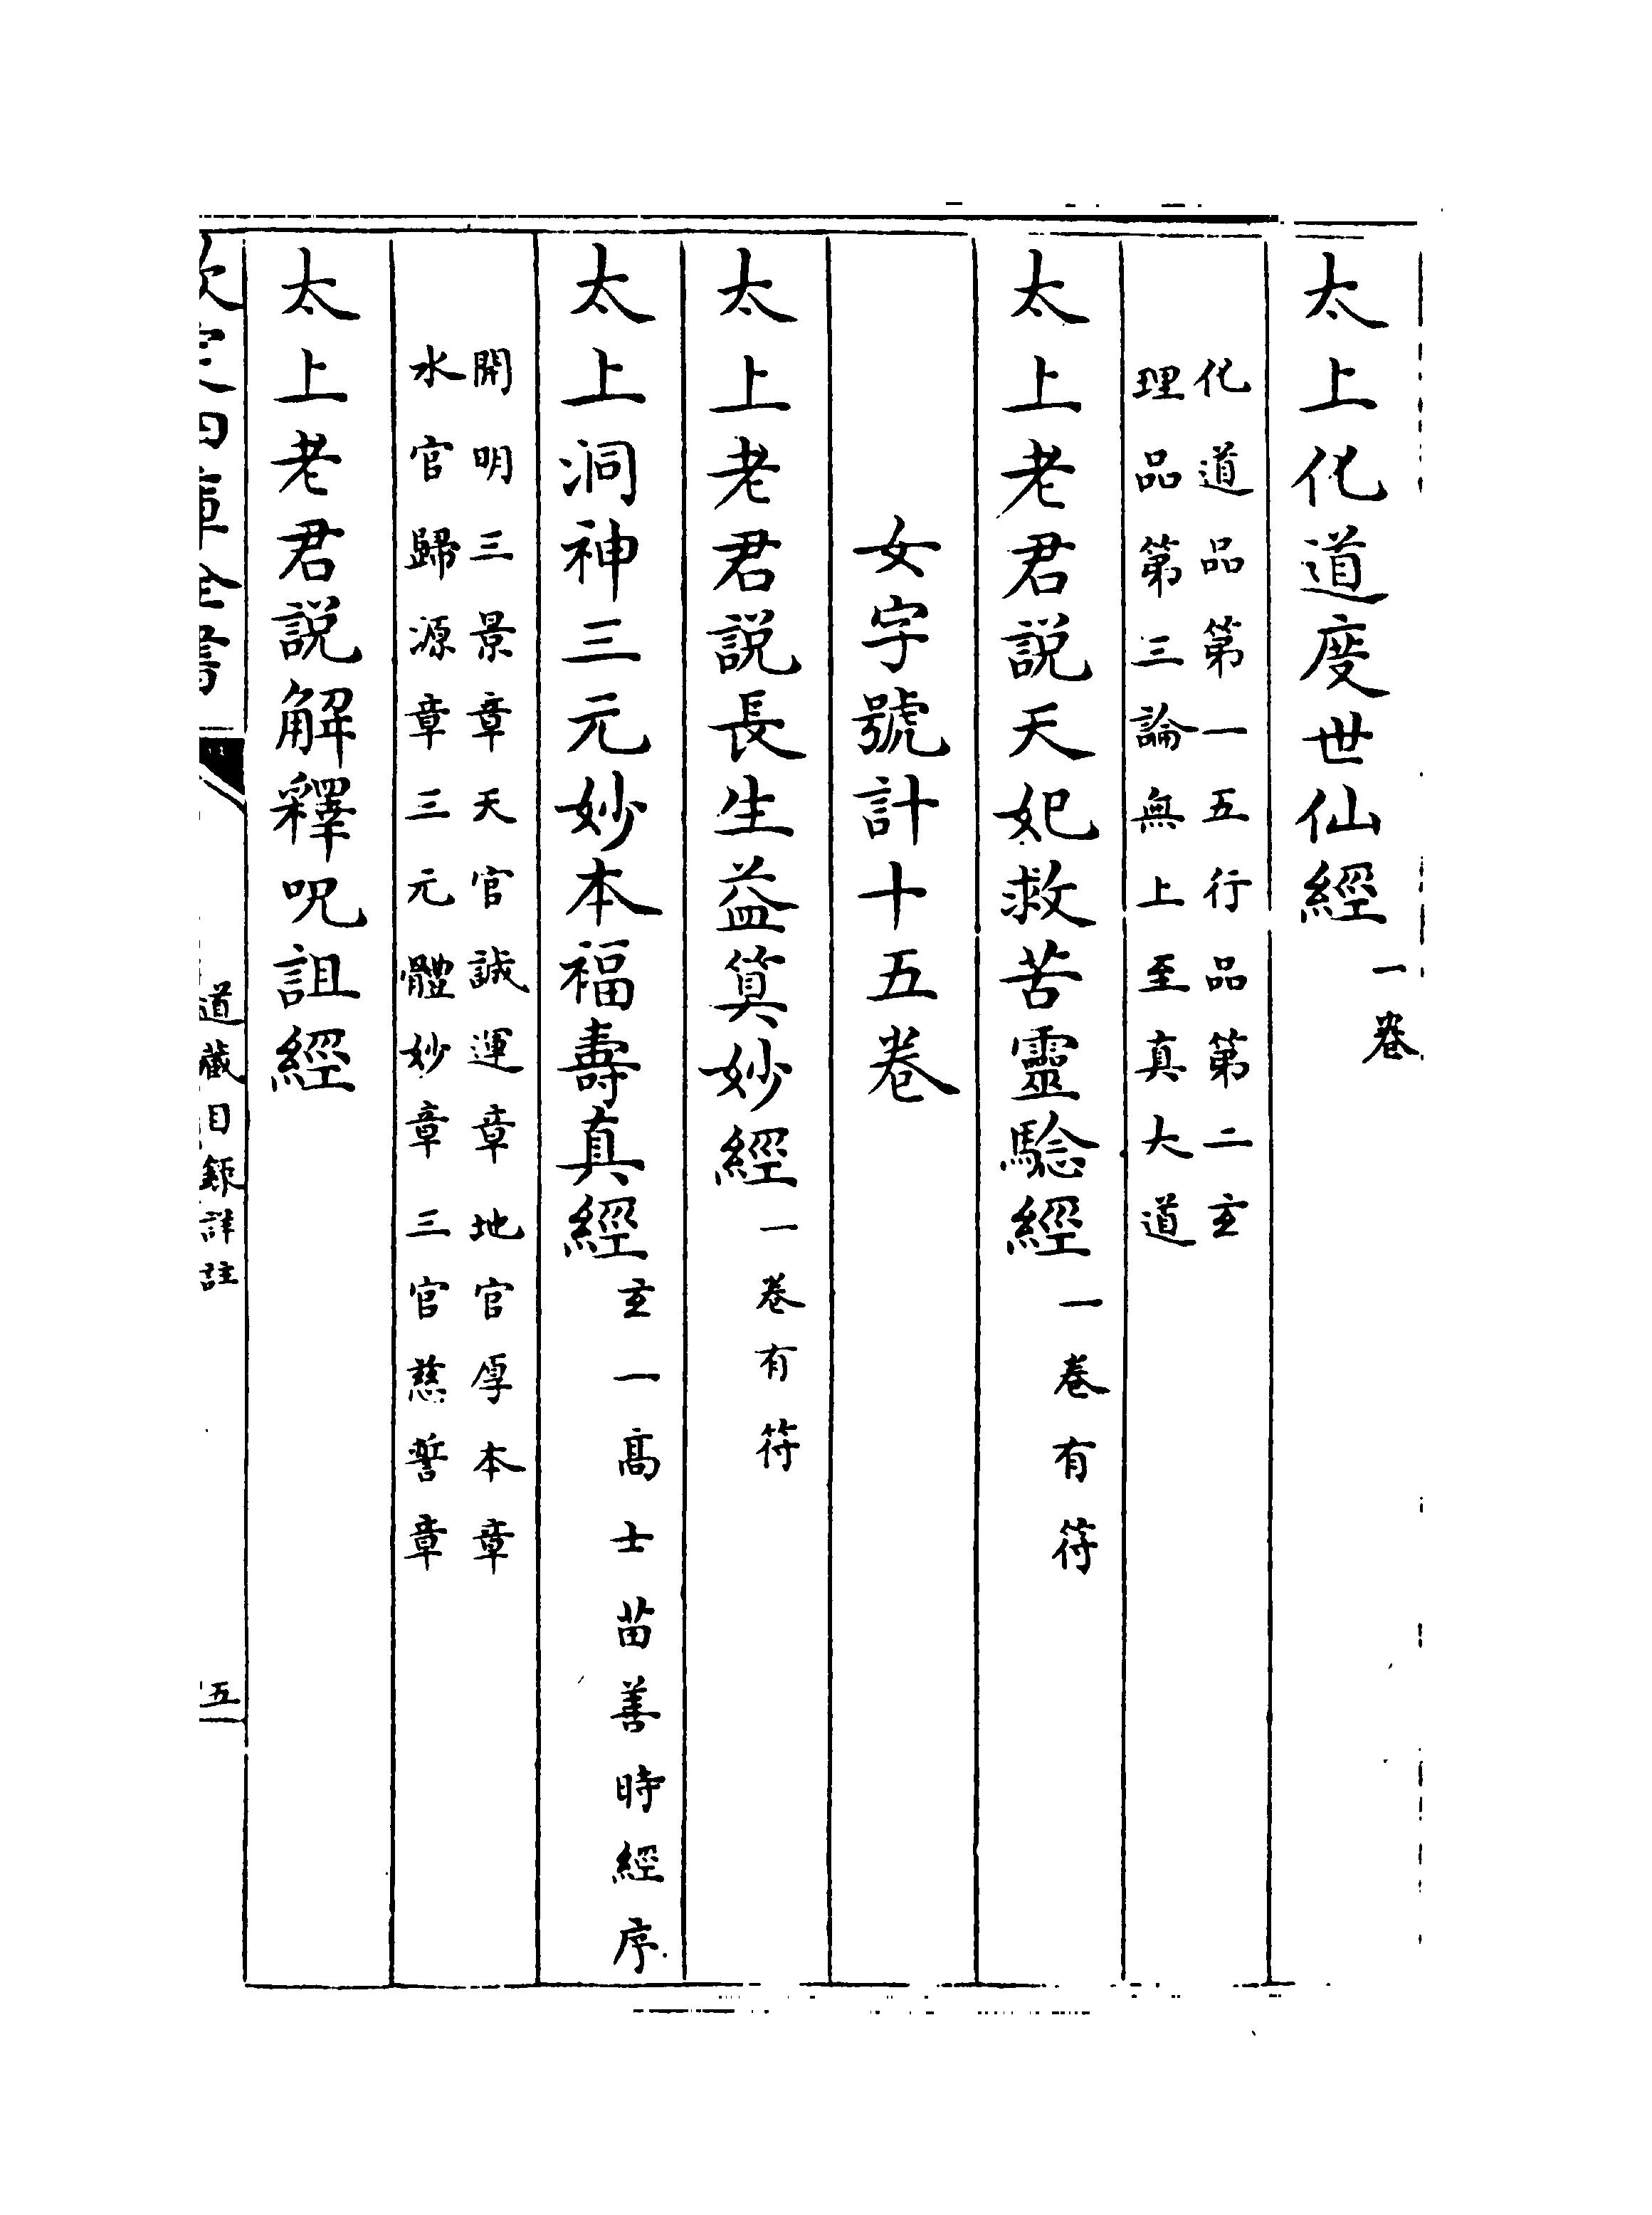 太上化道度世仙經一卷
化道品第一五行品第二玄
理品第三論無上至真大道
太上老君説天妃救苦靈驗經一卷有符
女字號計十五卷
太上老君説長生益算妙經一卷有符
太上洞神三元妙本福壽真經玄一高士苗善時經序
開明三景章天官誠運章地官厚本章
水官歸源章三元體妙章三官慈誓章
太上老君説解釋呪詛經
欽定四庫全書
道藏目錄詳註
五